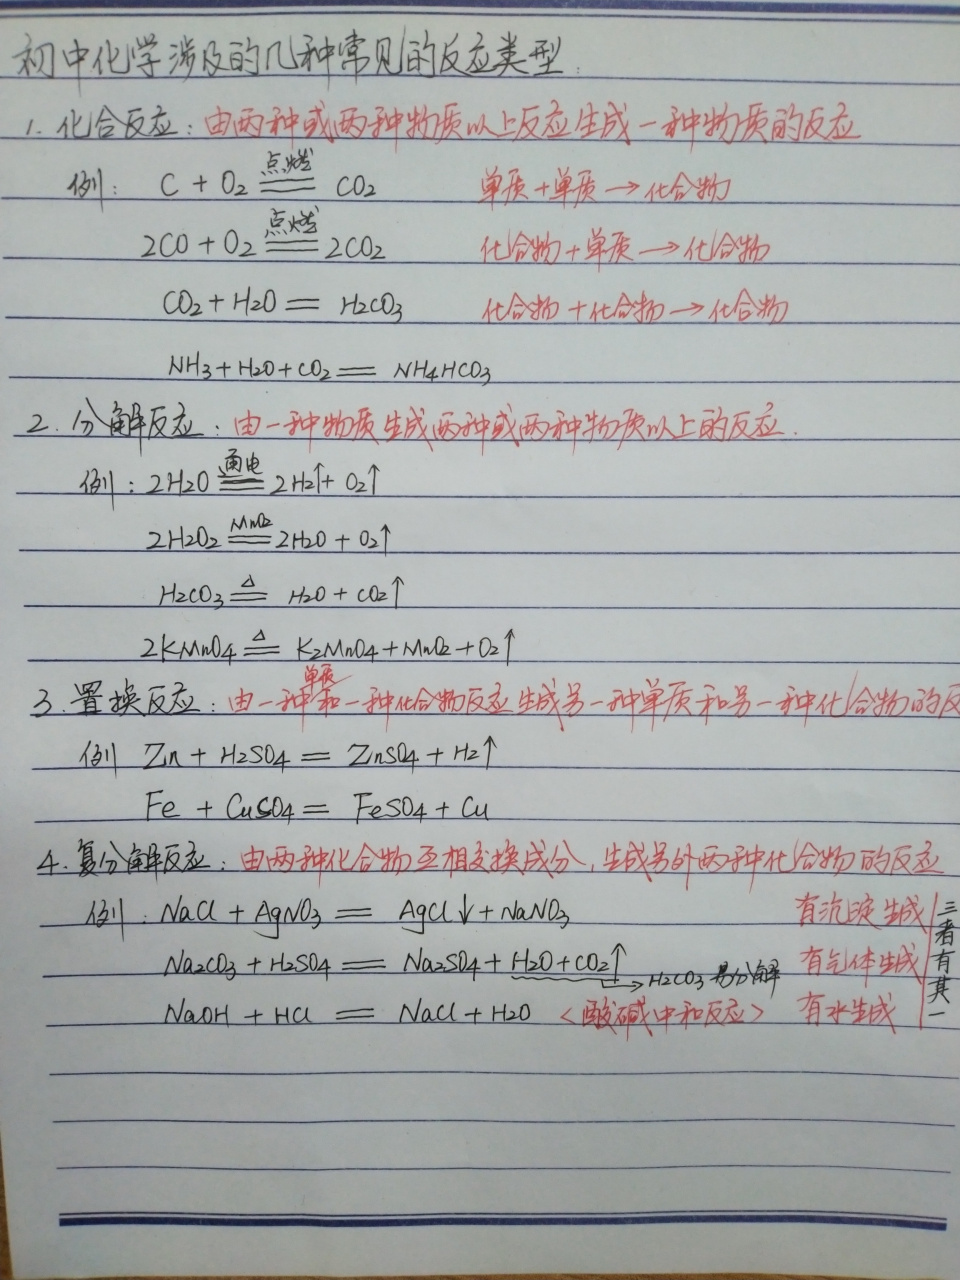 初中化学涉及的几种常见的反应类型.
1. 化合反应：由两种或两种物质以上反应生成一种物质的反应
例： C + O₂ 点燃══ CO₂ 单质+单质→化合物
2CO + O₂ 点燃══ 2CO₂ 化合物+单质→化合物
CO₂ + H₂O ══ H₂CO₃ 化合物+化合物→化合物
NH₃ + H₂O + CO₂ ══ NH₄HCO₃
2. 分解反应：由一种物质生成两种或两种物质以上的反应.
例：2H₂O 通电══ 2H₂↑ + O₂↑
2H₂O₂ MnO₂══ 2H₂O + O₂↑
H₂CO₃ △══ H₂O + CO₂↑
2KMnO₄ △══ K₂MnO₄ + MnO₂ + O₂↑
3. 置换反应：由一种单质和一种化合物反应生成另一种单质和另一种化合物的反
例 Zn + H₂SO₄ ══ ZnSO₄ + H₂↑
Fe + CuSO₄ ══ FeSO₄ + Cu
4. 复分解反应：由两种化合物互相交换成分，生成另外两种化合物的反应
例：NaCl + AgNO₃ ══ AgCl↓ + NaNO₃ 有沉淀生成
Na₂CO₃ + H₂SO₄ ══ Na₂SO₄ + H₂O + CO₂↑ 有气体生成
→H₂CO₃ 易分解
NaOH + HCl ══ NaCl + H₂O <酸碱中和反应> 有水生成
三者有其一